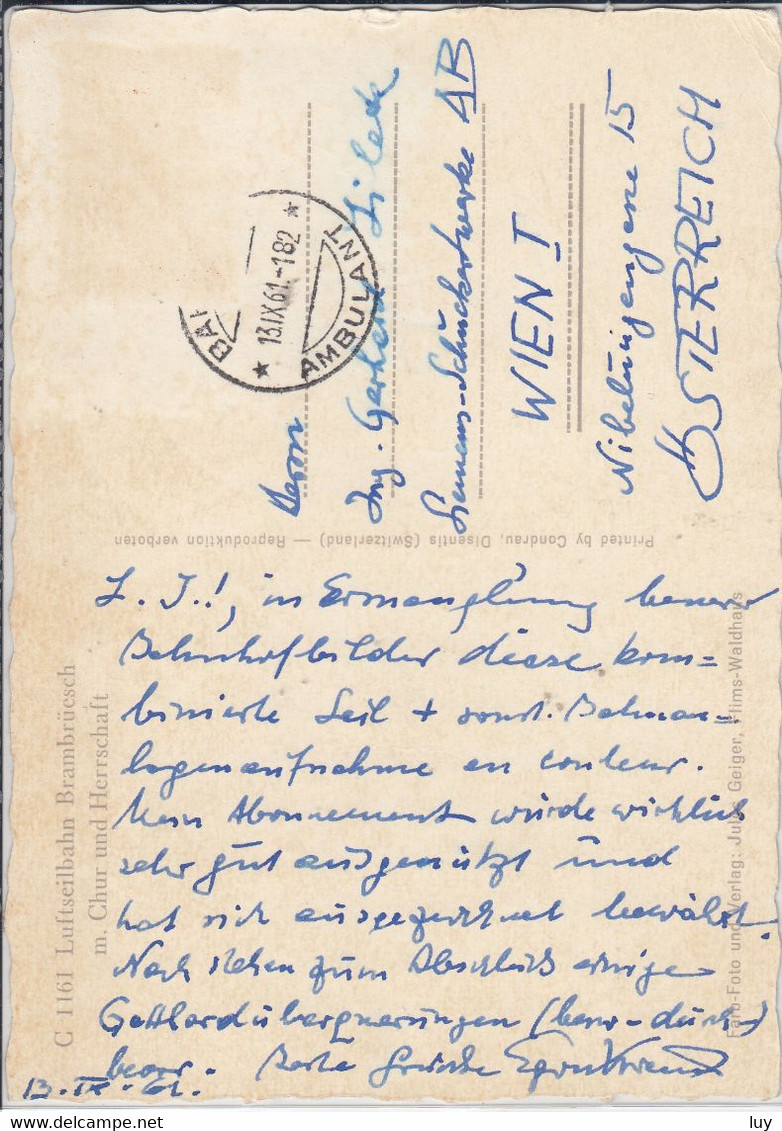 C 1161 Luftseilbahn Brambrüesch
m. Chur und Herrschaft
L. J.!, in Ermanglung
Bahnhofbilder diese kom=
binierte Seil + sonst. Bahnan=
lagenaufnahme en couleur.
Mein Abonnement wurde wirklich
sehr gut ausgenützt und
hat sich ausgezeichnet bewährt.
Noch stehen zum Abschluß einige
Gotthardüberquerungen (bezw-durch)
bevor. Beste Grüsse Egon
13. IX. 61.
Printed by Condrau, Disentis (Switzerland) — Reproduktion verboten
Farb-Foto und Verlag: Jules Geiger, Flims-Waldhaus
BAH
13.IX.61.-182
AMBULANT
Herrn
Ing. Gerhard
Siemens-Schuckertwerke AB
WIEN I
Nibelungengasse 15
ÖSTERREICH
www.delcampe.net
luy